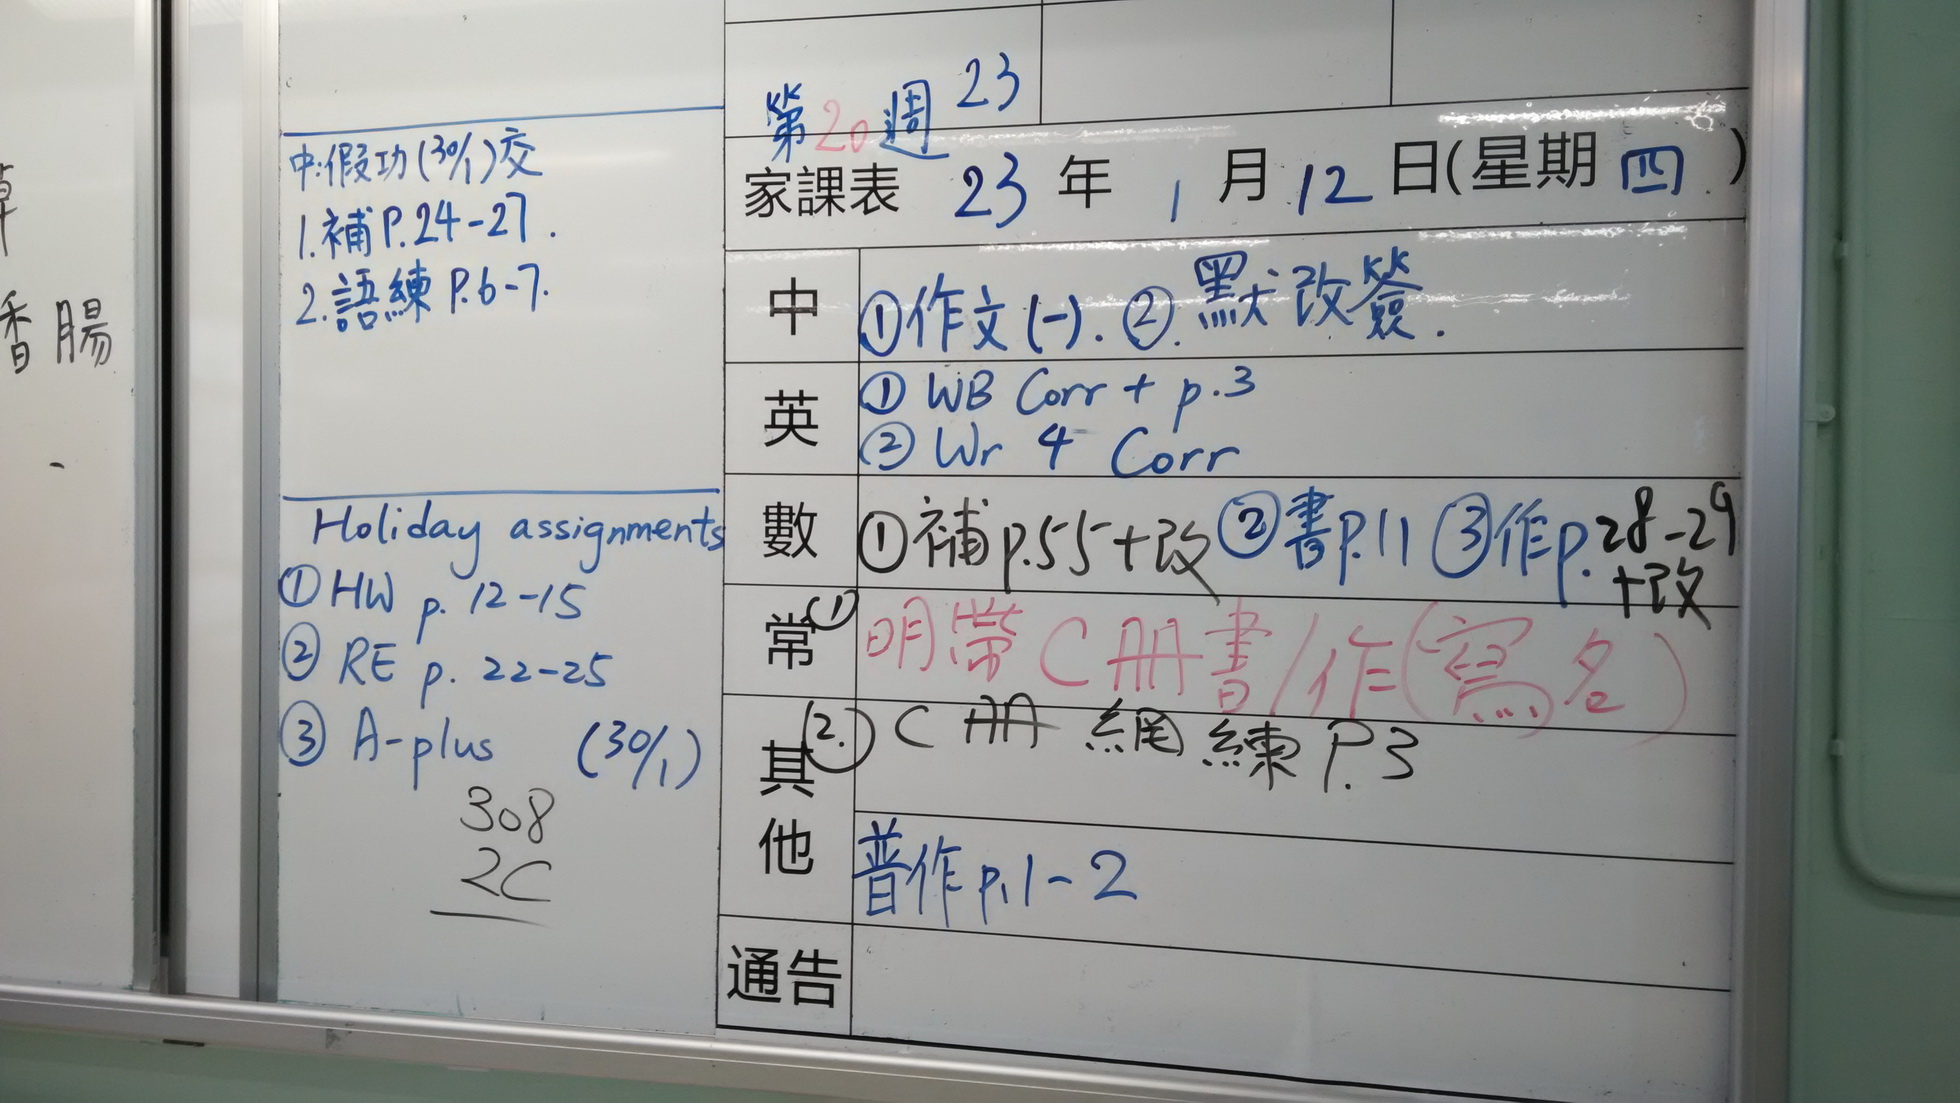 香腸
中:假功(30/1)交
1.補P.24-27.
2.語練P.6-7.
Holiday assignments
① HW p. 12-15
② RE p. 22-25
③ A-plus (30/1)
308
2C
第20週 23
家課表 23 年 1 月 12 日(星期 四 )
中 ①作文(一). ②.默改簽.
英 ① WB Corr + p.3
② Wr 4 Corr
數 ①補p.55+改 ②書p.11 ③作p.28-29
+改
常 (1) 明帶C冊書/作(寫名)
其他 (2.) C冊 網練 P.3
普作p.1-2
通告